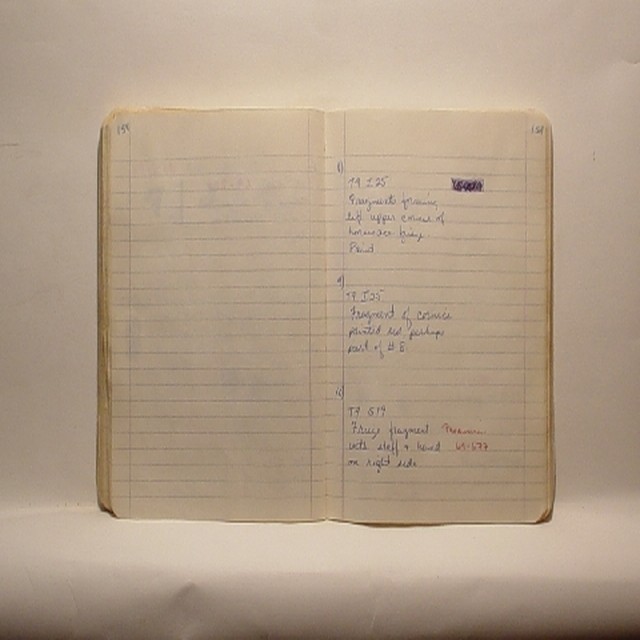 T9 I25
Fragments forming
left upper corner of
horserace frieze
Paint
T9 I25
Fragment of cornice
painted red perhaps
part of # 8.
T9 G19
Frieze fragment
with staff & hand
on right side